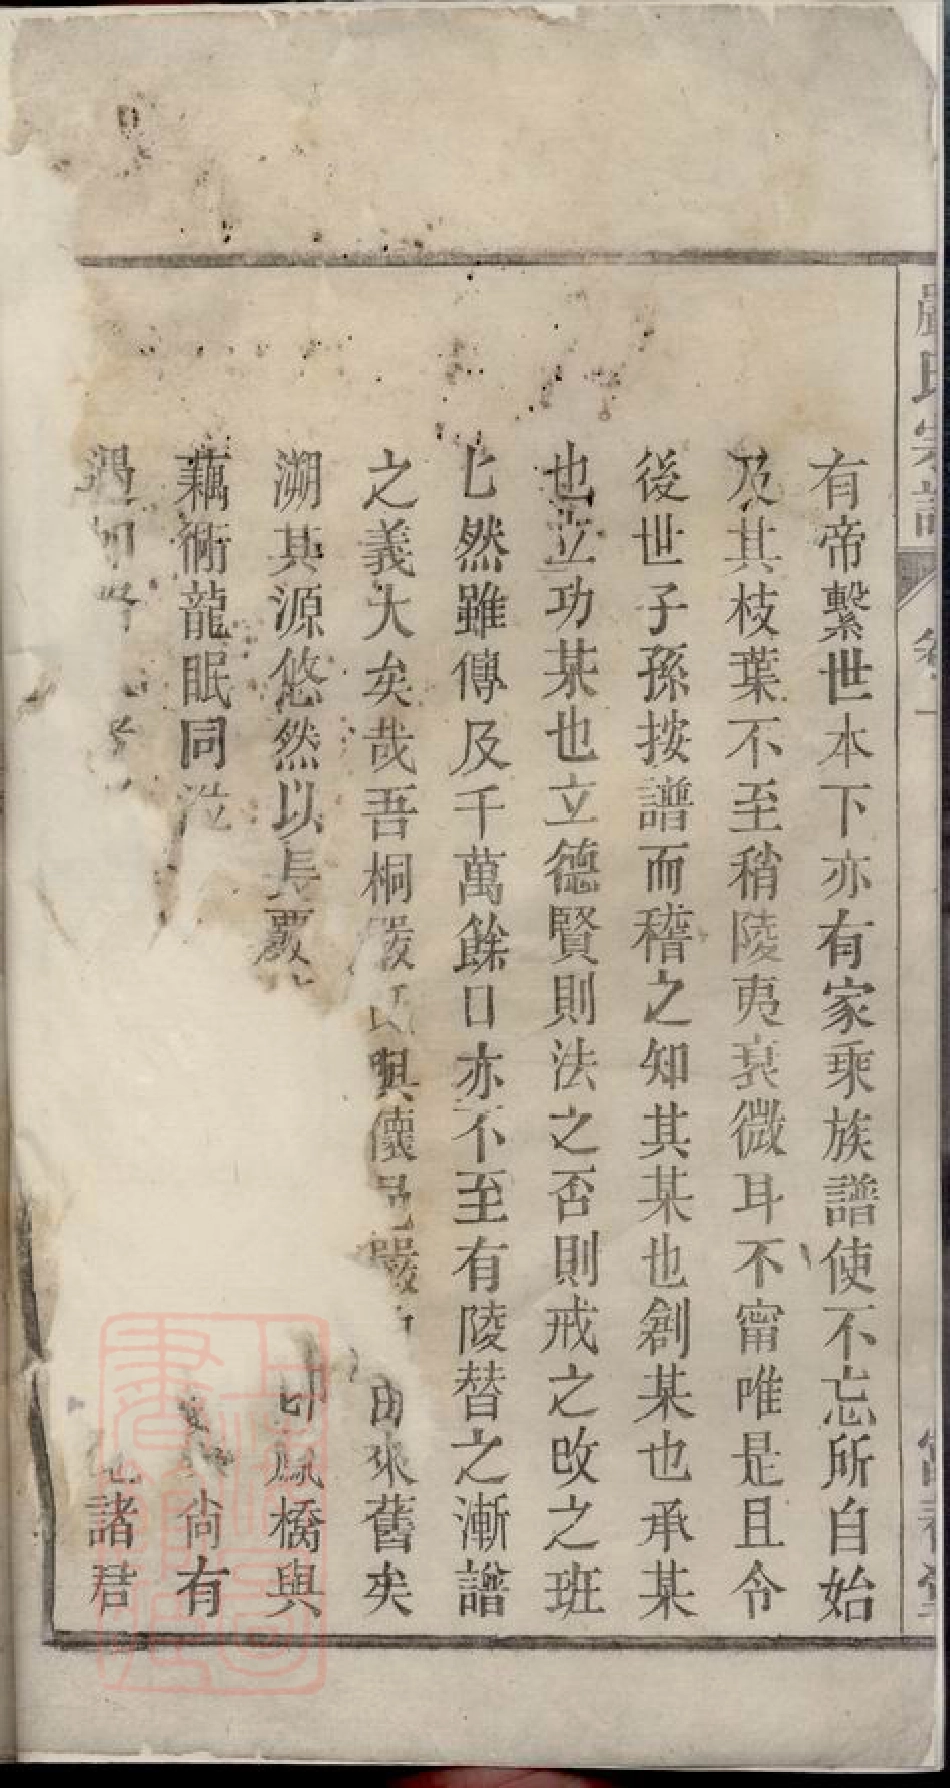 嚴氏宗譜 卷一
有帝繫世本下亦有家乘族譜使不忘所自始
及其枝葉不至稍陵夷衰微耳不甯唯是且令
後世子孫按譜而稽之知其某也創某也承某
也立功某也立德賢則法之否則戒之攺之班
匕然雖傳及千萬餘口亦不至有陵替之漸譜
之義大矣哉吾桐嚴氏與懷邑嚴 由來舊矣
溯其源悠然以長覈 橋與
藕衖龍眠同 尙有
遇 諸君